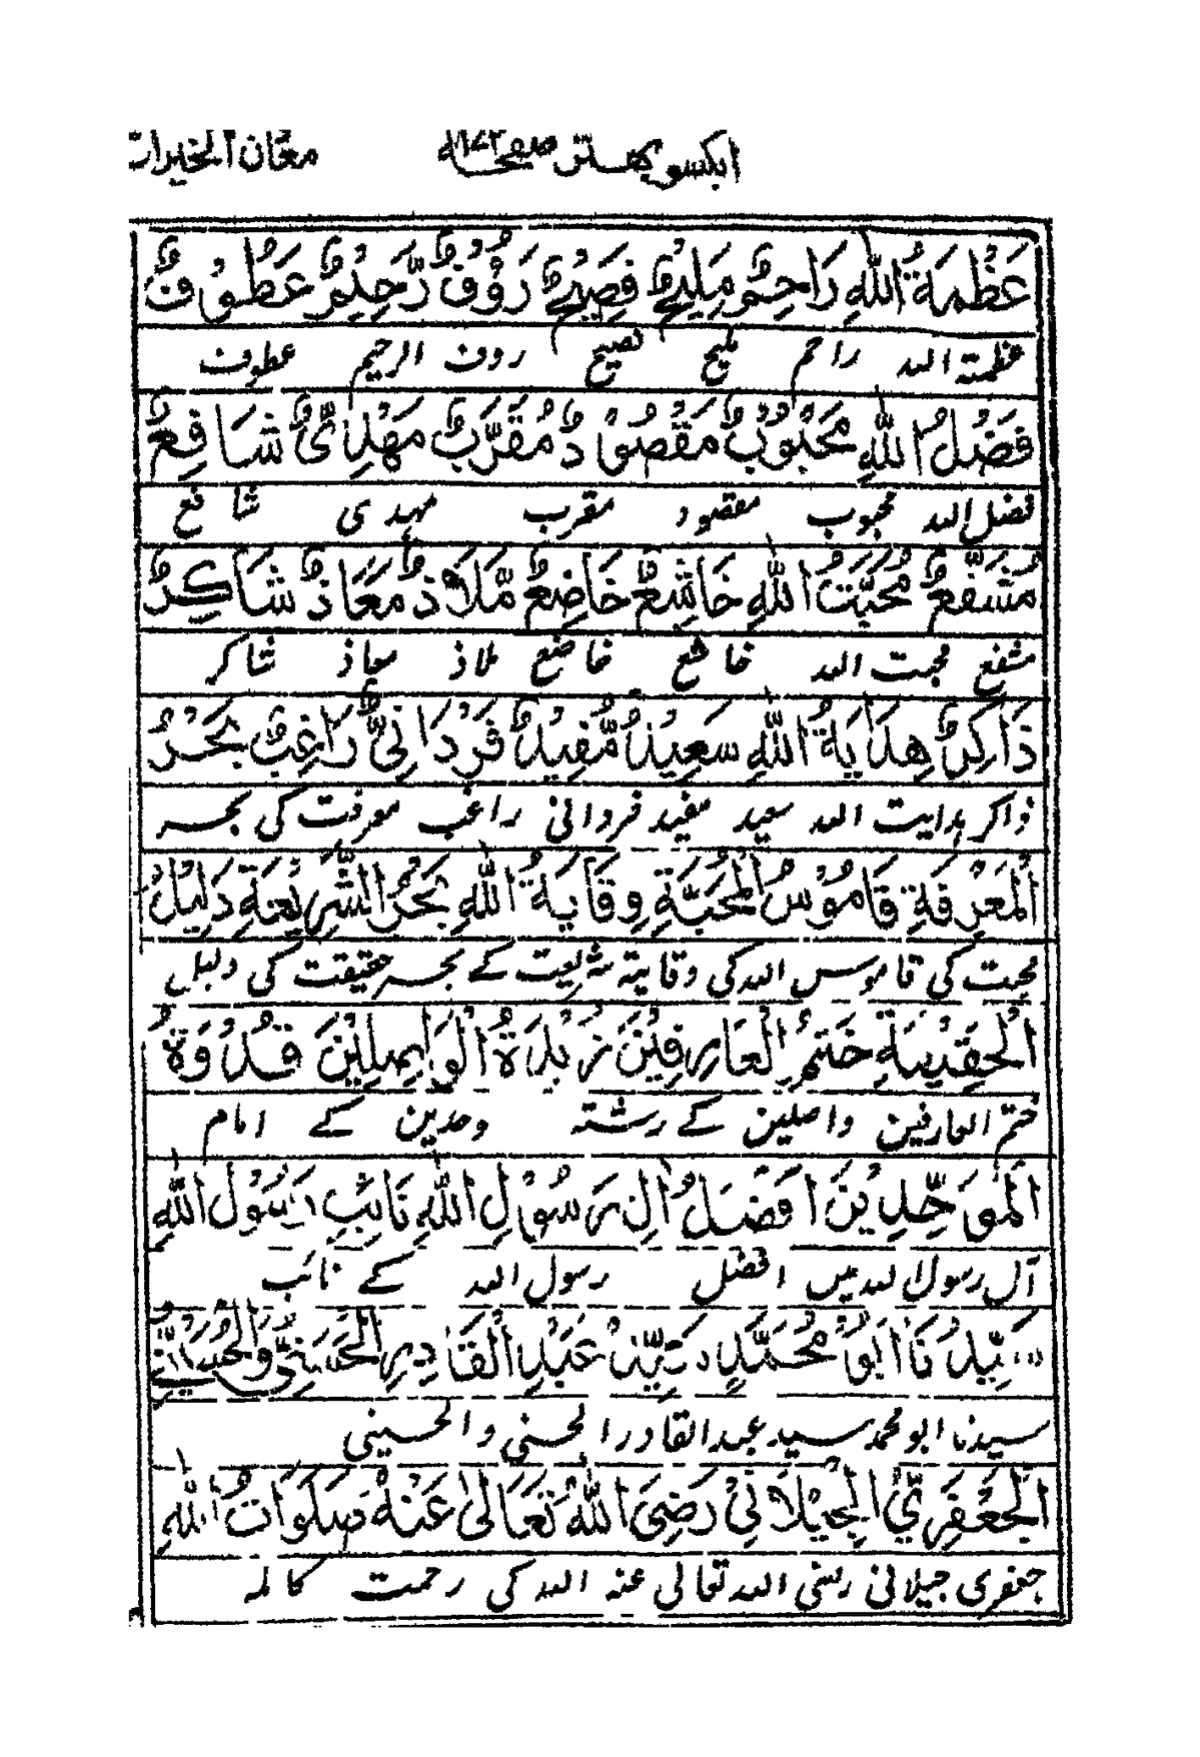 ایکسو بہتر صفحہ ۱۷۲ معان الخیرات
عَظْمَةُ اللهِ رَاحِمٌ مَلِيْحٌ فَصِيْحٌ رَؤُفٌ رَّحِيْمٌ عَطُوْفٌ
عظمتہ اللہ راحم ملیح فصیح روف الرحیم عطوف
فَضْلُ اللهِ مَحْبُوْبٌ مَقْصُوْدٌ مُقَرَّبٌ مَهْدِيٌّ شَافِعٌ
فضل اللہ محبوب مقصود مقرب مہدی شافع
مُشَفَّعٌ مُحَبَّتُ اللهِ خَاشِعٌ خَاضِعٌ مَّلَاذٌ مَعَاذٌ شَاكِرٌ
مشفع محبت اللہ خاشع خاضع ملاذ معاذ شاکر
ذَاكِرٌ هِدَايَةُ اللهِ سَعِيْدٌ مُّفِيْدٌ فَرْدَانِيٌّ رَاغِبٌ بَحْرُ
ذاکر ہدایت اللہ سعید مفید فردانی راغب معرفت کی بحر
الْمَعْرِفَةِ قَامُوْسُ الْمُحَبَّةِ وِقَايَةُ اللهِ بَحْرُ الشَّرِيْعَةِ دَلِيْلُ
محبت کی قاموس اللہ کی وقایتہ شریعت کے بحر حقیقت کی دلیل
الْحَقِيْقَةِ خَتْمُ الْعَارِفِيْنَ زُبْدَةُ الْوَاصِلِيْنَ قُدْوَةُ
ختم العارفین واصلین کے رشتہ وحدین کے امام
الْمُوَحِّدِيْنَ اَفْضَلُ اٰلِ رَسُوْلِ اللهِ نَائِبِ رَسُوْلِ اللهِ
آل رسول اللہ میں افضل رسول اللہ کے نائب
سَيِّدُنَا اَبُوْ مُحَمَّدٍ سَيِّدْ عَبْدِ الْقَادِرِ الْحَسَنِيِّ وَالْحُسَيْنِيِّ
سیدنا ابو محمد سید عبدالقادر الحسنی والحسینی
الْجَعْفَرِيِّ الْجِيْلَانِيْ رَضِيَ اللهُ تَعَالٰى عَنْهُ صَلَوَاتُ اللهِ
جعفری جیلانی رضی اللہ تعالی عنہ اللہ کی رحمت کاملہ